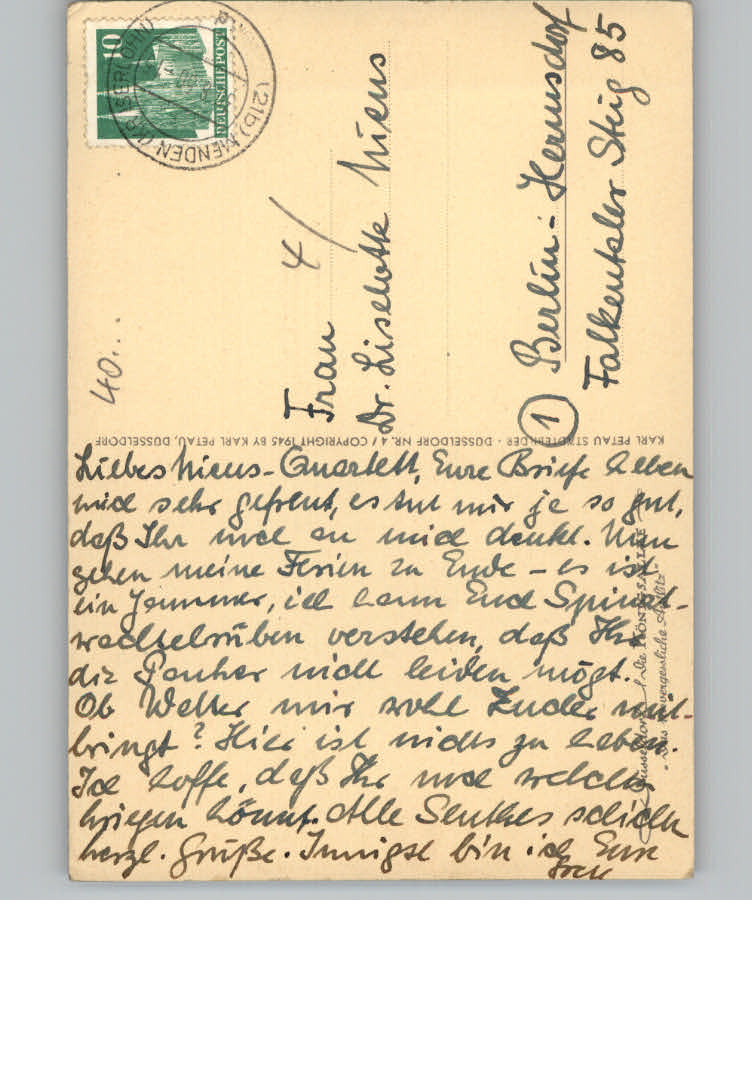 10
DEUTSCHE POST
(21b) MENDEN (KR. ISERLOHN)
40...
4/
Frau
Dr. Liselotte Niens
① Berlin-Hermsdorf
Falkentaler Steig 85
KARL PETAU STÄDTEBILDER · DÜSSELDORF NR. 4 / COPYRIGHT 1945 BY KARL PETAU, DÜSSELDORF
Düsseldorf / Die KÖNIGSALLEE
"Das unvergessliche Antlitz"
Liebes Niens-Quartett, Eure Briefe haben
mich sehr gefreut, es tut mir ja so gut,
daß Ihr mal an mich denkt. Nun
gehen meine Ferien zu Ende – es ist
ein Jammer, ich kann Euch
verstehen, daß Ihr
die Pauker nicht leiden mögt.
Ob Walter mir wohl Zucker mit-
bringt? Hier ist nichts zu haben.
Ich hoffe, daß Ihr mal welchen
kriegen könnt. Alle schicken
herzl. Grüße. Innigst bin ich Eure